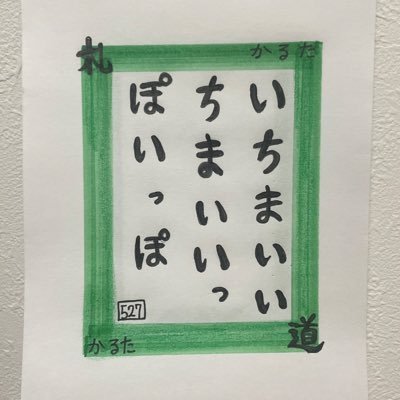 札
かるた
いちまいい
ちまいいっ
ぽいっぽ
527
かるた
道